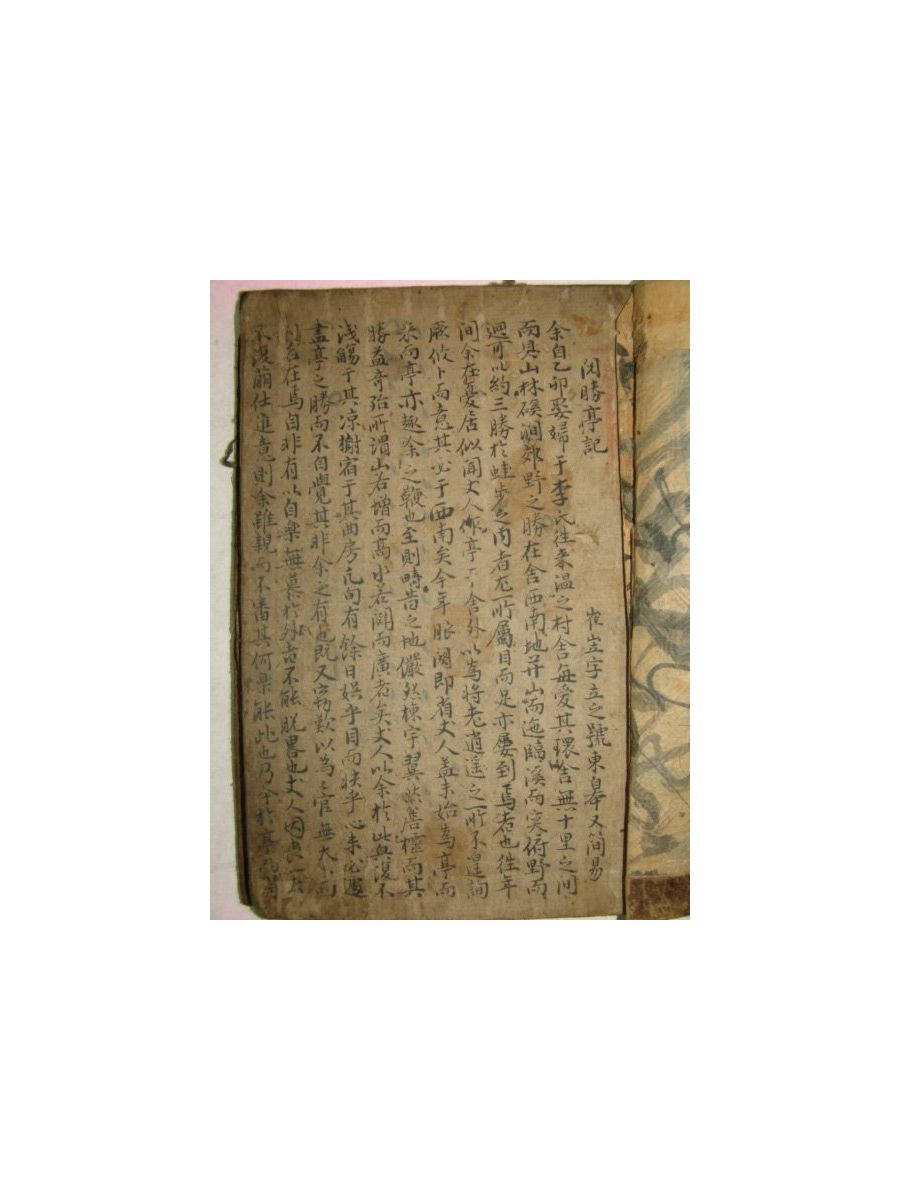 閑勝亭記 崔岦字立之號東皋又簡易
余自乙卯娶婦于李氏往來溫之村舍每愛其環舍無十里之間
而具山林磎澗郊野之勝在舍西南地幷山而迤臨溪而突俯野而
逈可以約三勝於蛙步之內者尤所屬目而足亦屢到焉者也往年
間余在憂居似聞丈人作亭于舍外以為將老逍遙之所不遑詢
厥攸卜而意其必于西南矣今年服闋即省丈人盖未始為亭而
來而亭亦逐余之鞭也至則疇昔之地儼然棟宇翼然簷櫺而其
勝益奇殆所謂山若增而高水若闢而廣者矣丈人以余於此無復不
淺觴于其凉榭宿于其曲房凡旬有餘日娛乎目而快乎心未必
盡亭之勝而不自覺其非余之有也旣又竊歎以為官無大小而
在焉自非有以自樂無慕於外者不能脫畧也丈人
不復萠仕進意則余雖親而不審其何果能此也乃今於亭